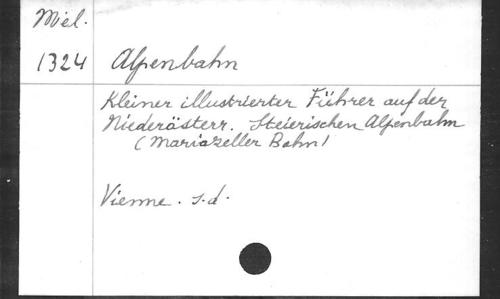 Mél.
1324 Alpenbahn
Kleiner illustrierter Führer auf der
Niederösterr. Steierischen Alpenbahn
(Mariazeller Bahn)
Vienne. s.d.